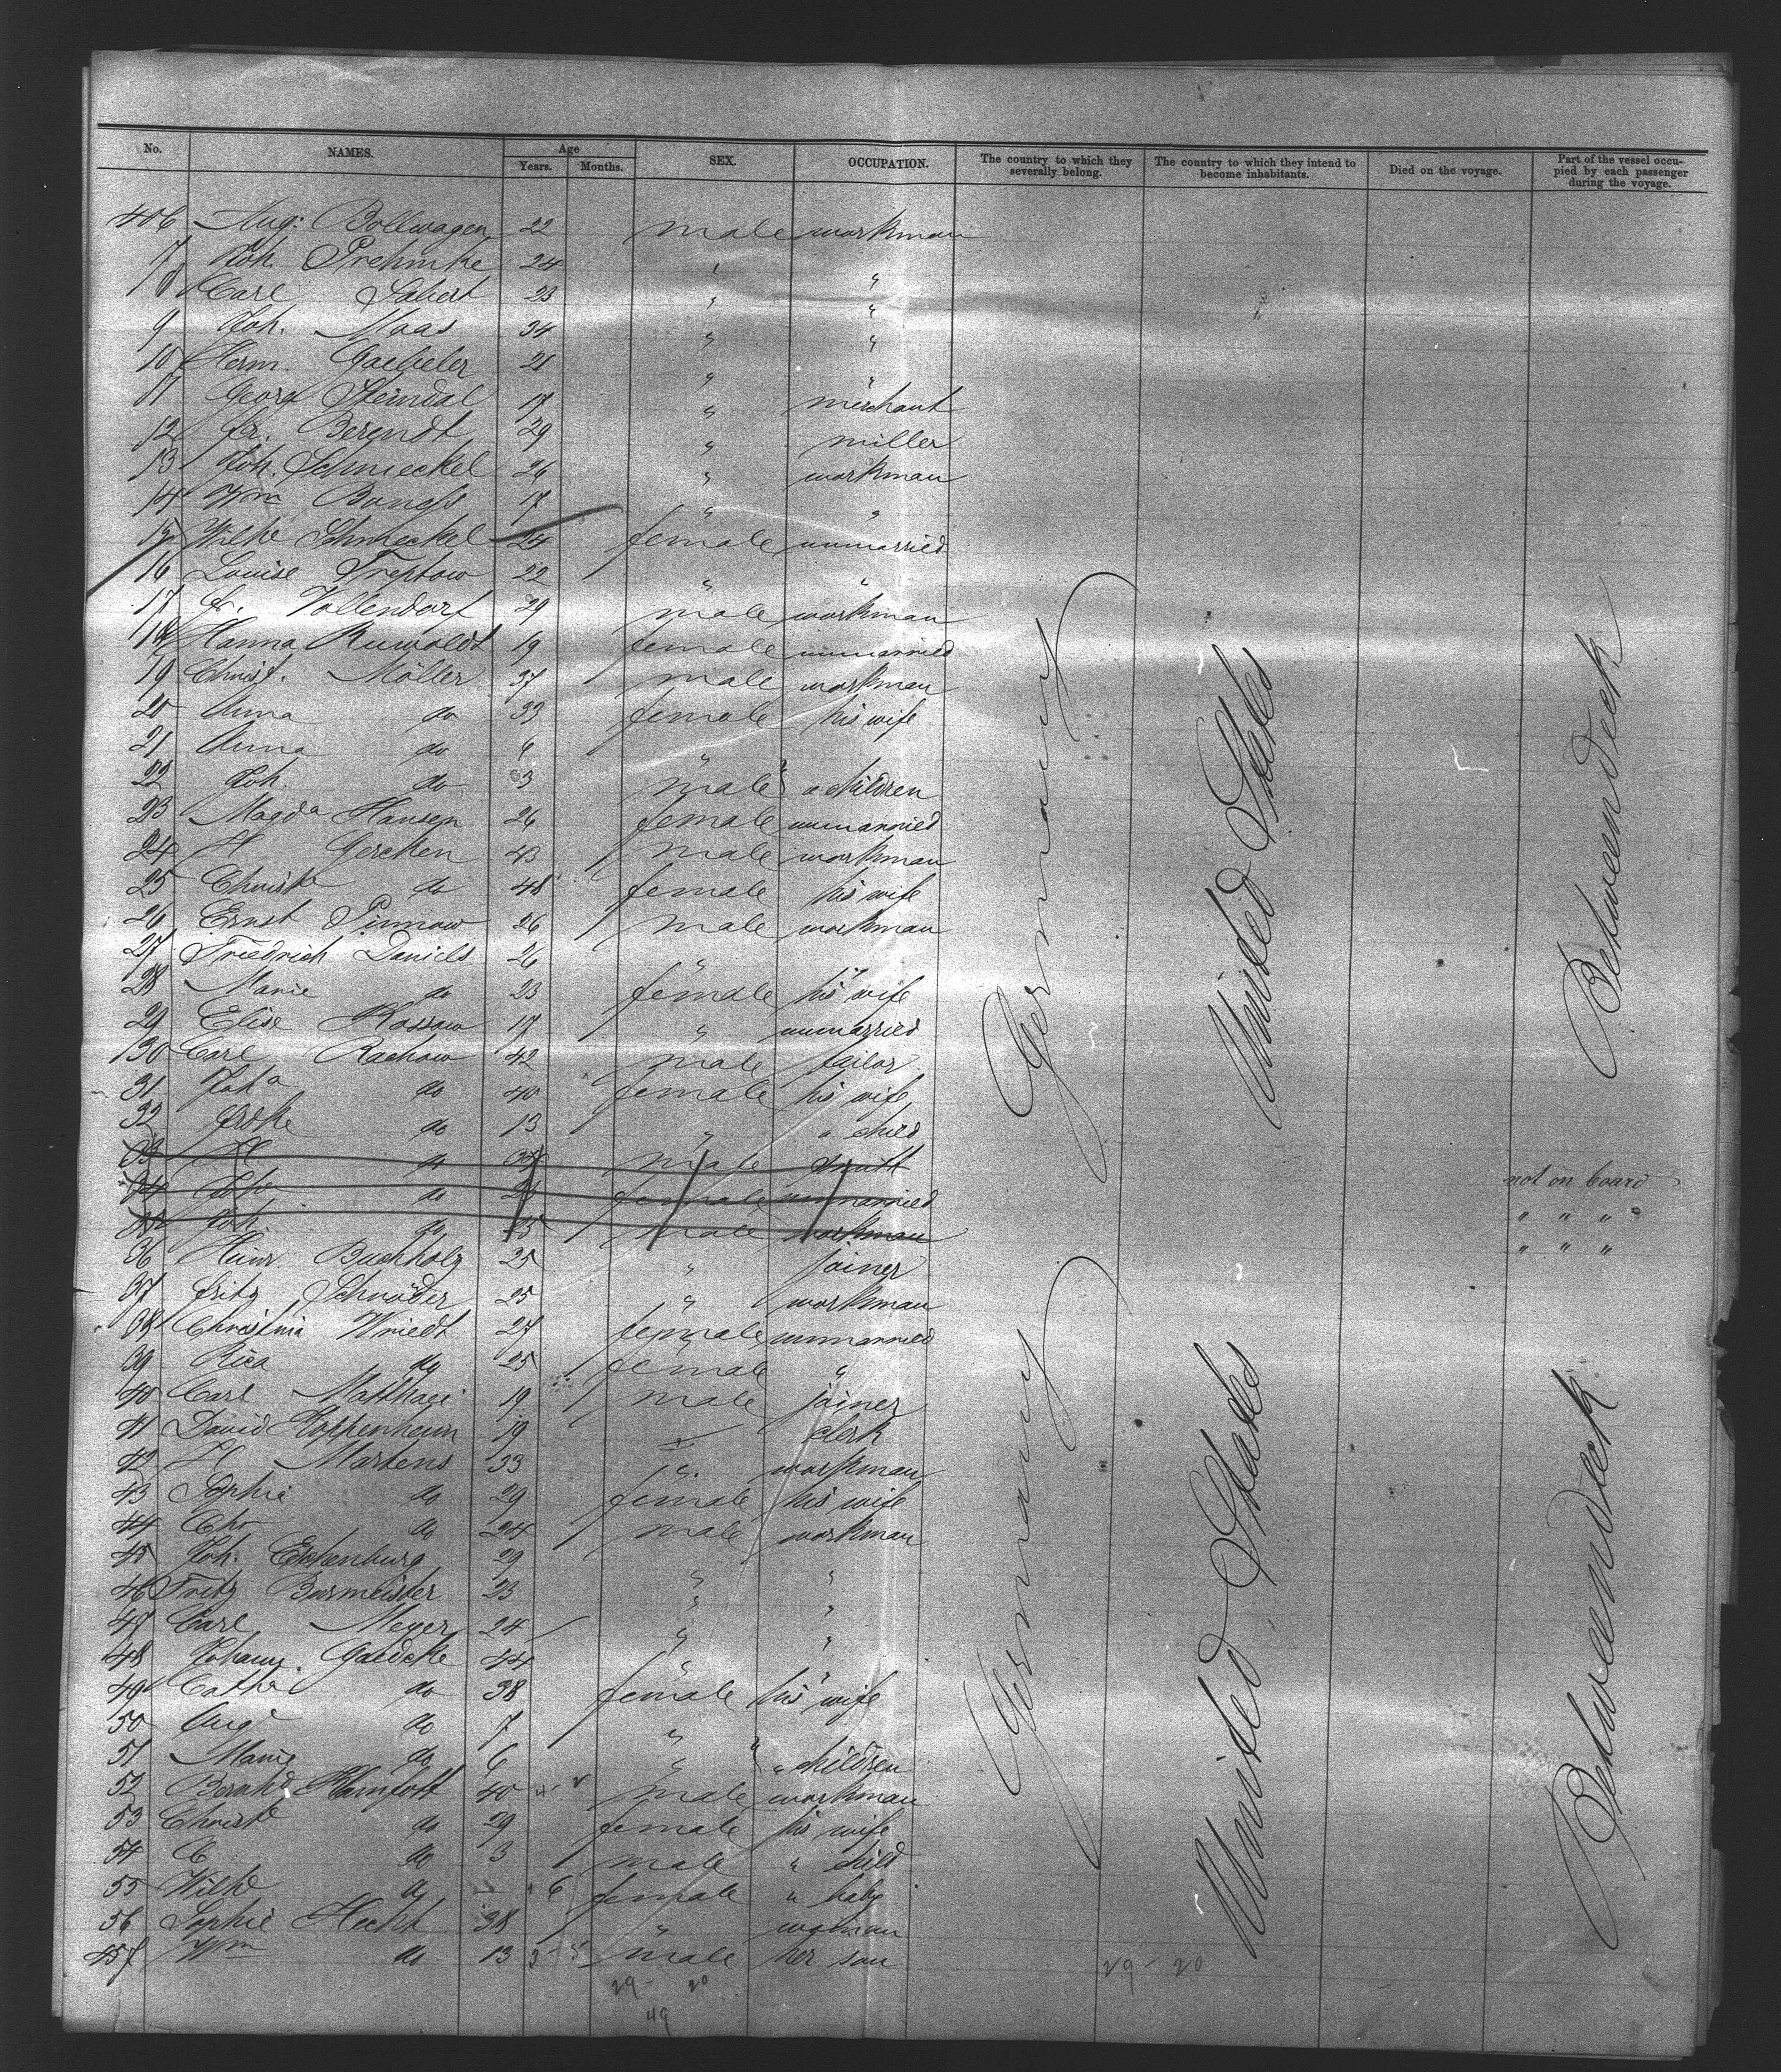 No. NAMES. Age Years. Months. SEX. OCCUPATION. The country to which they severally belong. The country to which they intend to become inhabitants. Died on the voyage. Part of the vessel occupied by each passenger during the voyage.
406 Aug: Bollwagen 22 male workman
7 Joh. Prehmke 24 " "
8 Carl Sabert 23 " "
9 Joh. Maas 34 " "
10 Herm. Gaebeler 21 " "
11 Georg Steindal 17 " merchant
12 Fr. Berendt 29 " miller
13 Joh. Schmeckel 26 " workman
14 Wm Bangs 17 " "
15 Wilhe Schmeckel 24 female unmarried
16 Louise Treptow 22 " "
17 Fr. Vollendorf 29 male workman
18 Hanna Ruwoldt 19 female unmarried
19 Christ. Möller 37 male workman
20 Anna do 33 female his wife
21 Anna do 6 "
22 Joh. do 3 male " children
23 Magda Hansen 26 female unmarried
24 H Gercken 43 male workman
25 Christe do 48 female his wife
26 Ernst Pinnow 26 male workman
27 Friedrich Daniels 26 " "
28 Marie do 23 female his wife
29 Elise Rossow 17 " unmarried
130 Carl Rachow 42 male tailor
31 Joha do 40 female his wife
32 Fredke do 13 " a child
33 do male smith not on board
34 do female unmarried " " "
35 Joh. do 25 male workman " " "
36 Heinr. Buchholz 25 " joiner
37 Fritz Schröder 25 " workman
38 Christina Wriedt 27 female unmarried
39 Rica do 25 female "
40 Carl Matthaei 19 male joiner
41 David Koppenheim 19 " clerk
42 H Martens 33 " workman
43 Sophie do 29 female his wife
44 Chr do 24 male workman
45 Joh. Eschenburg 29 " "
46 Fritz Burmeister 23 " "
47 Carl Meyer 24 " "
48 Johann Gaedcke 44 " "
49 Cathe do 38 female his wife
50 Auge do 7 "
51 Marie do 6 " " children
52 Bernhd Hamfott 40 male workman
53 Christe do 29 female his wife
54 C do 3 male " child
55 Wilhe do 6 female " baby
56 Sophie Hecht 38 " woman
457 Wm do 13 male her son
Germany United States Between Deck
Germany United States Between Deck
29 - 20 29 - 20
49